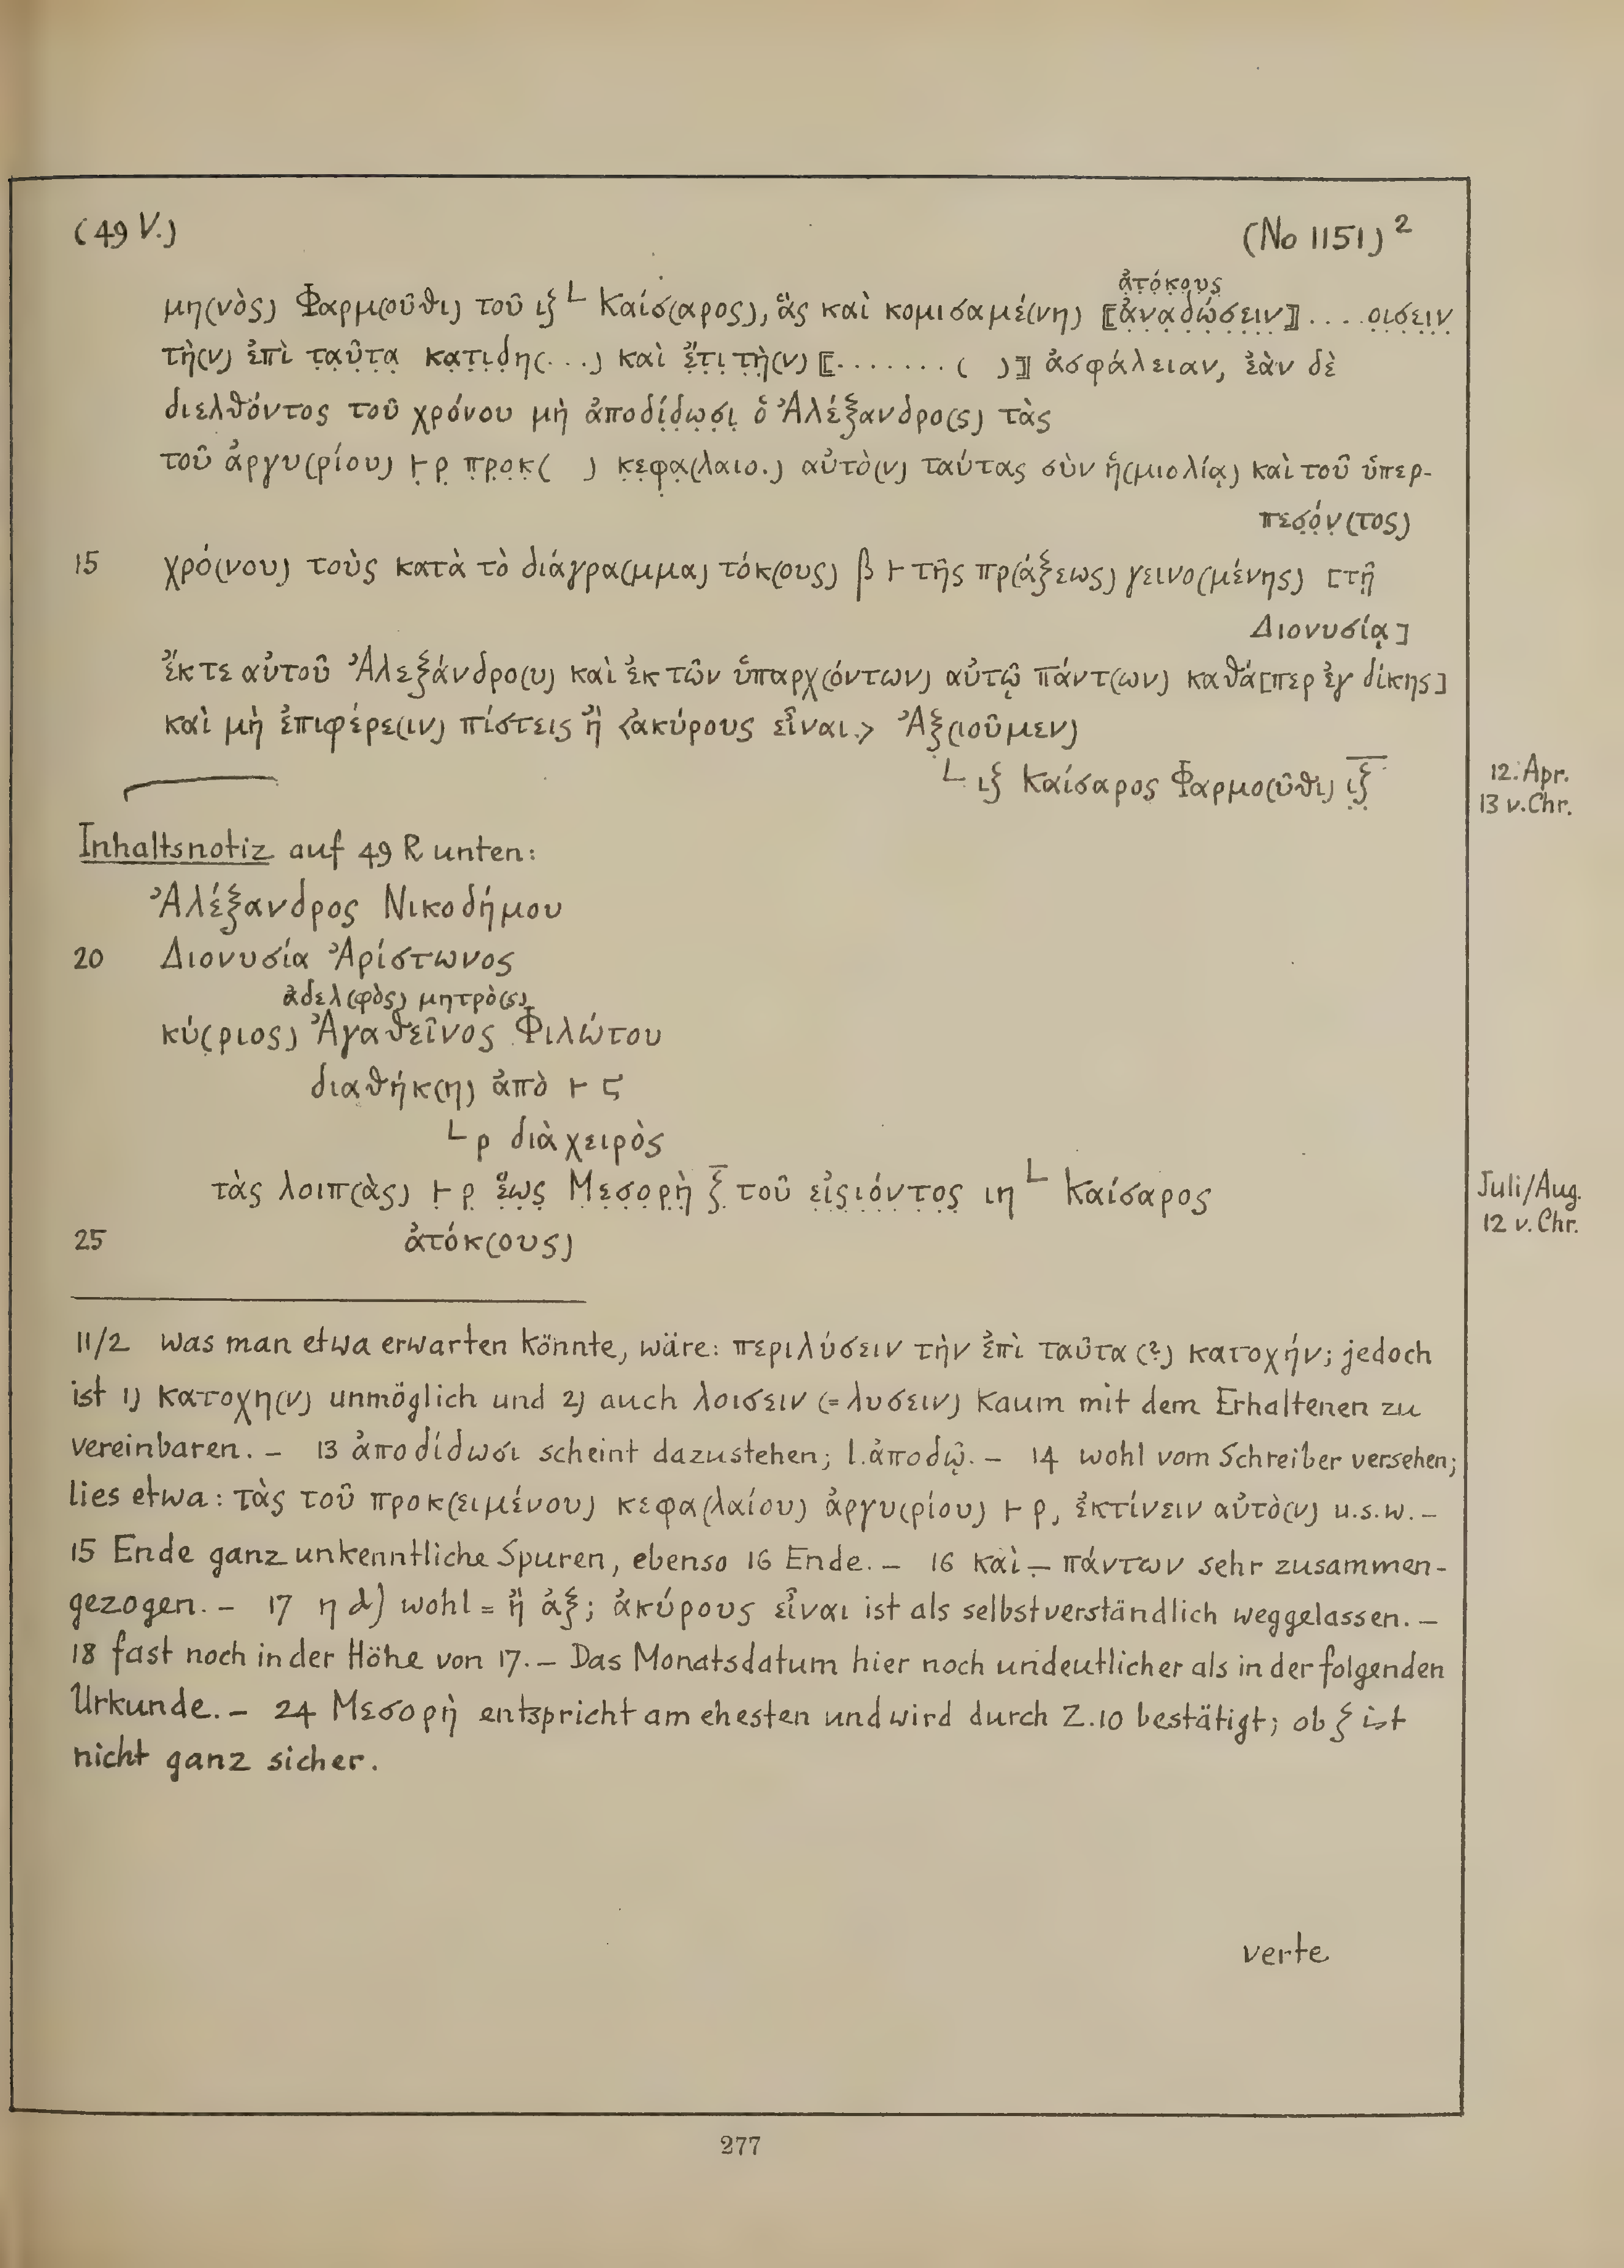 (49 V.)
(No 1151)²
ἀτόκους
μη(νὸς) Φαρμ(οῦθι) τοῦ ιξ └ Καίσ(αρος), ἃς καὶ κομισαμέ(νη) ⟦ἀναδώσειν⟧ .... οισειν
τὴ(ν) ἐπὶ ταῦτα κατιδη(...) καὶ ἔτι τὴ(ν) ⟦.......( )⟧ ἀσφάλειαν, ἐὰν δὲ
διελθόντος τοῦ χρόνου μὴ ἀποδίδωσι ὁ Ἀλέξανδρο(ς) τὰς
τοῦ ἀργυ(ρίου) ⊢ ρ προκ( ) κεφα(λαιο.) αὐτὸ(ν) ταύτας σὺν ἡ(μιολίᾳ) καὶ τοῦ ὑπερ-
πεσόν(τος)
15 χρό(νου) τοὺς κατὰ τὸ διάγρα(μμα) τόκ(ους) β ⊢ τῆς πρ(άξεως) γεινο(μένης) [τῇ
Διονυσίᾳ]
ἔκτε αὐτοῦ Ἀλεξάνδρο(υ) καὶ ἐκ τῶν ὑπαρχ(όντων) αὐτῷ πάντ(ων) καθά[περ ἐγ δίκης]
καὶ μὴ ἐπιφέρε(ιν) πίστεις ἢ <ἀκύρους εἶναι.> Ἀξ(ιοῦμεν)
└ ιξ Καίσαρος Φαρμο(ῦθι) ιξ
12. Apr.
13 v. Chr.
Inhaltsnotiz auf 49 R unten:
Ἀλέξανδρος Νικοδήμου
20 Διονυσία Ἀρίστωνος
ἀδελ(φὸς) μητρὸ(ς)
κύ(ριος) Ἀγαθεῖνος Φιλώτου
διαθήκ(η) ἀπὸ ⊢ ϛ
└ ρ διὰ χειρὸς
τὰς λοιπ(ὰς) ⊢ ρ ἕως Μεσορὴ ξ τοῦ εἰςιόντος ιη └ Καίσαρος
Juli/Aug.
12 v. Chr.
25 ἀτόκ(ους)
11/2 Was man etwa erwarten könnte, wäre: περιλύσειν τὴν ἐπὶ ταῦτα (?) κατοχήν; jedoch
ist 1) κατοχη(ν) unmöglich und 2) auch λοισειν (= λυσειν) kaum mit dem Erhaltenen zu
vereinbaren. – 13 ἀποδίδωσι scheint dazustehen; l. ἀποδῷ. – 14 wohl vom Schreiber versehen;
lies etwa: τὰς τοῦ προκ(ειμένου) κεφα(λαίου) ἀργυ(ρίου) ⊢ ρ, ἐκτίνειν αὐτὸ(ν) u.s.w. –
15 Ende ganz unkenntliche Spuren, ebenso 16 Ende. – 16 καὶ – πάντων sehr zusammen-
gezogen. – 17 η wohl = ἢ ἀξ; ἀκύρους εἶναι ist als selbstverständlich weggelassen. –
18 fast noch in der Höhe von 17. – Das Monatsdatum hier noch undeutlicher als in der folgenden
Urkunde. – 24 Μεσορὴ entspricht am ehesten und wird durch Z. 10 bestätigt; ob ξ ist
nicht ganz sicher.
verte
277